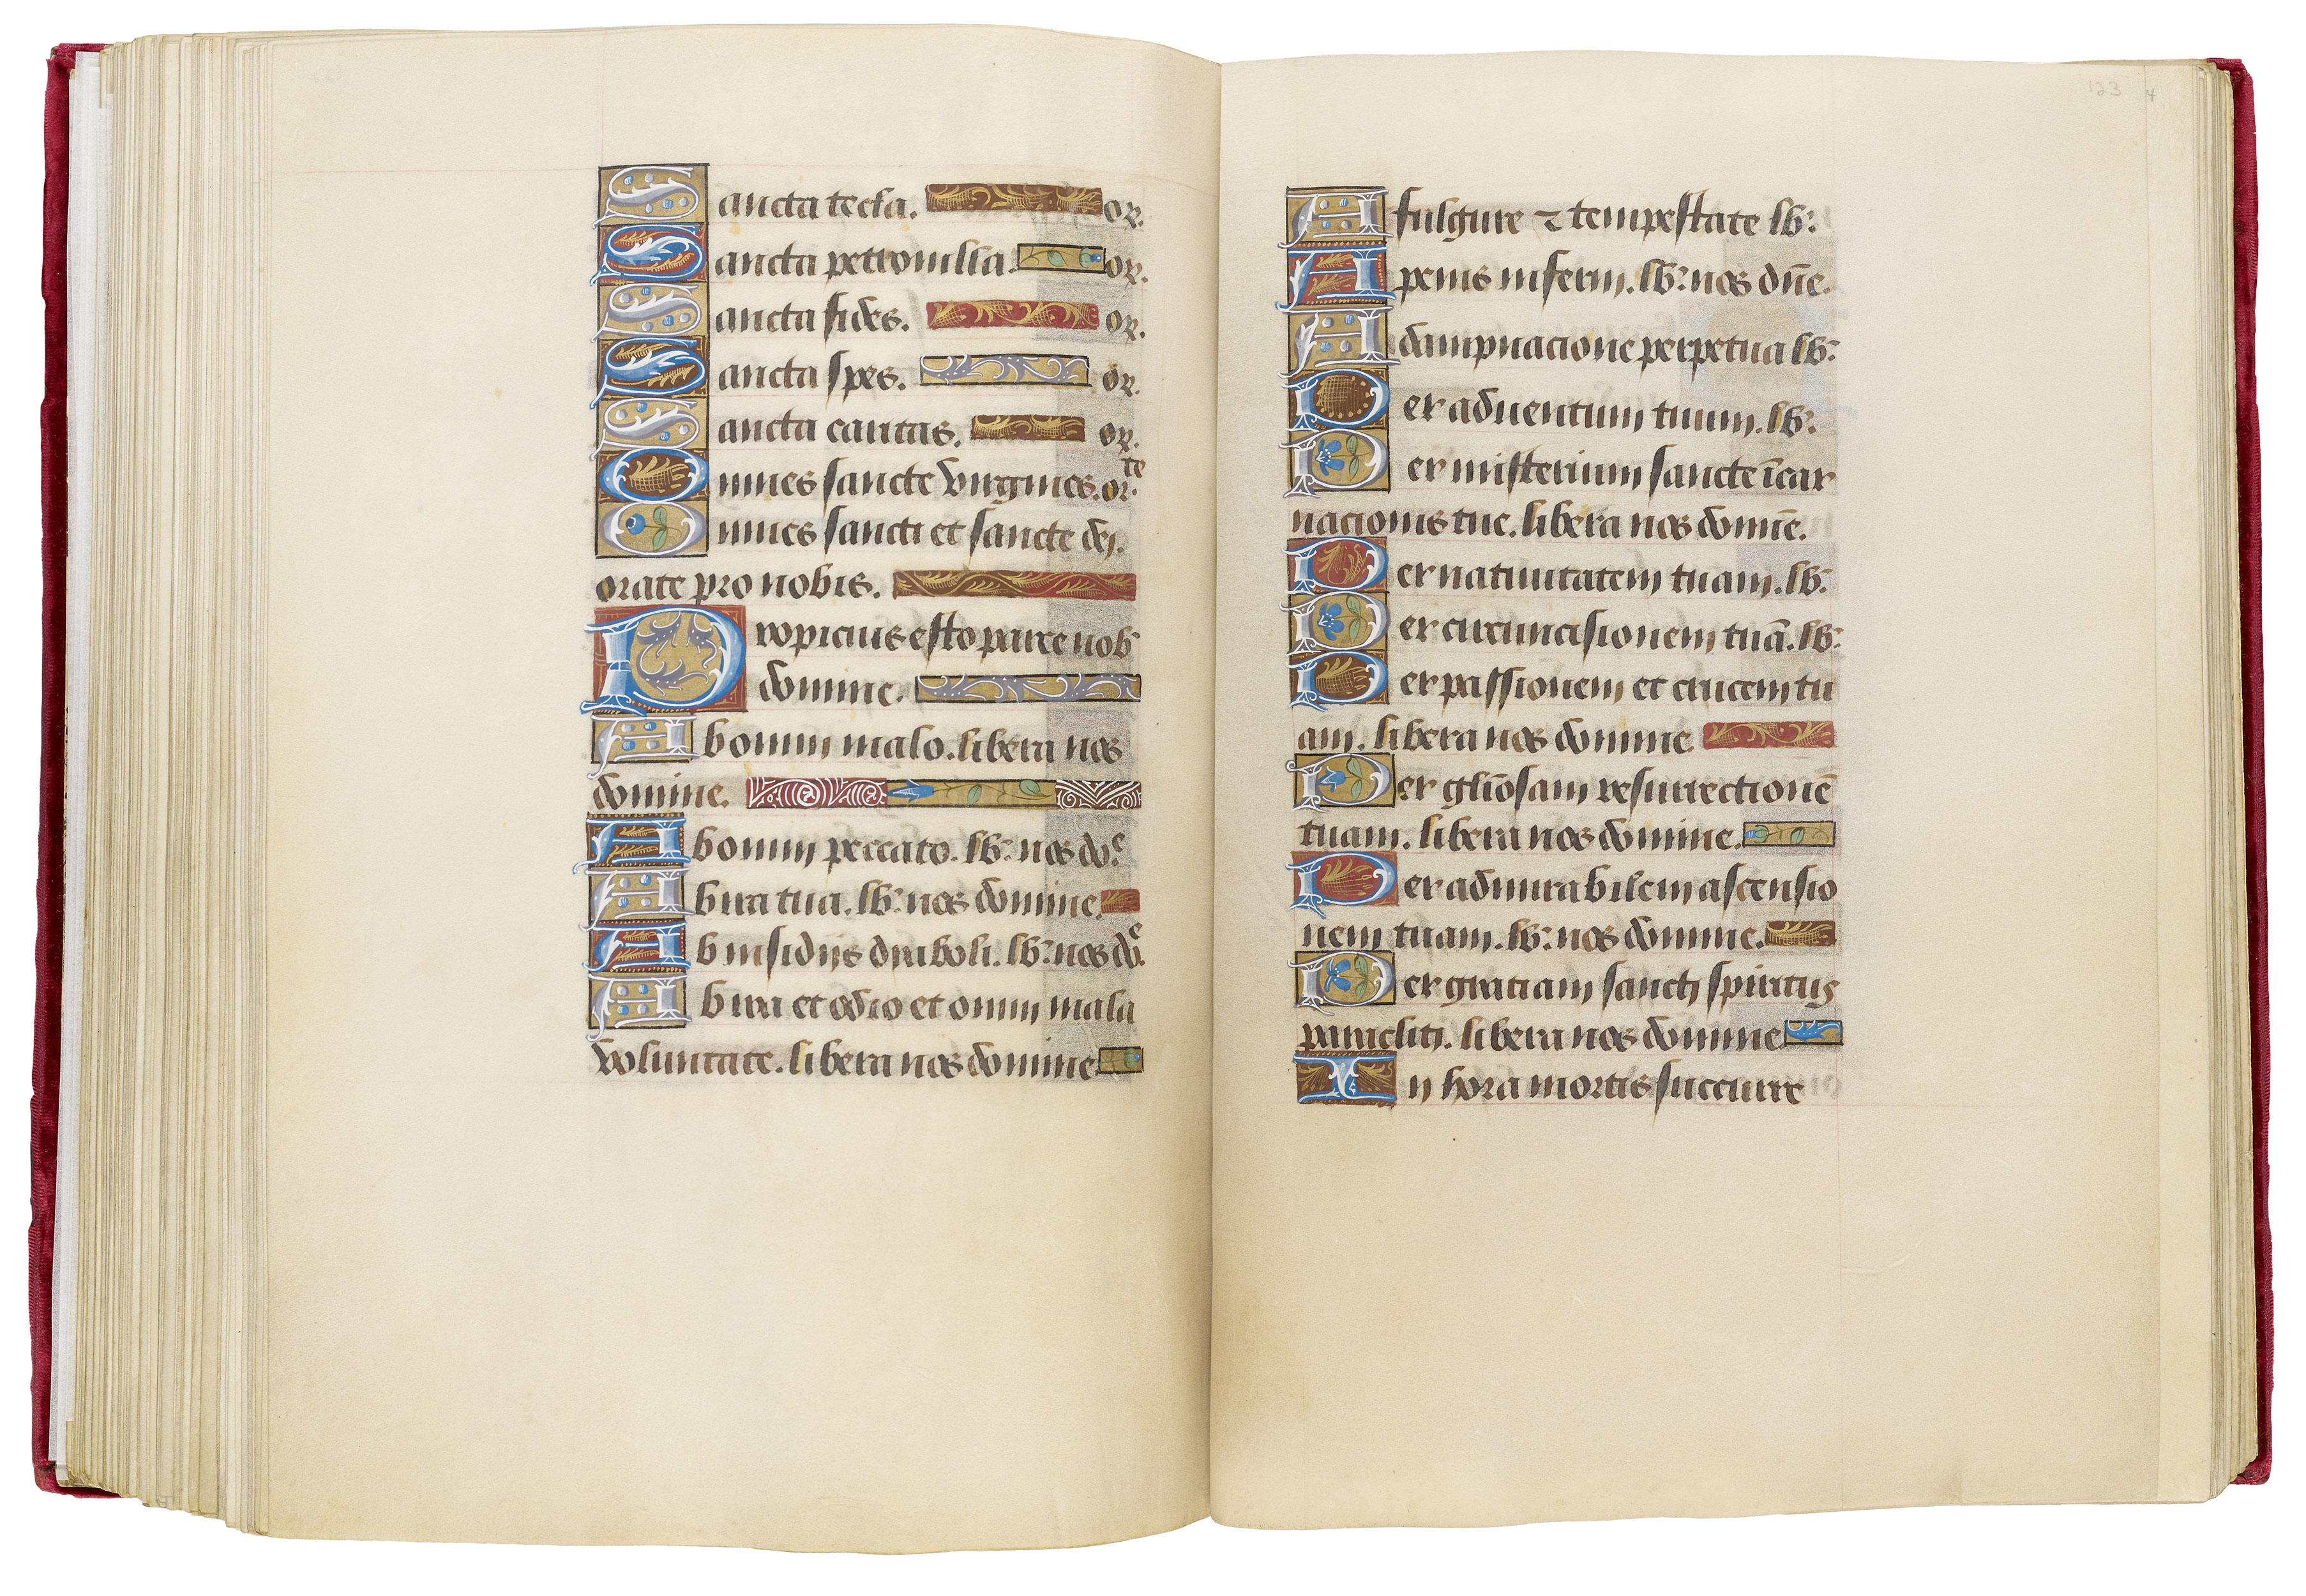 Sancta tecla. or.
Sancta petronilla. or.
Sancta fides. or.
Sancta spes. or.
Sancta caritas. or.
Omnes sancte virgines. or.te
Omnes sancti et sancte dei.
orate pro nobis.
Propicius esto parce nob
domine.
Ab omni malo. libera nos
domine.
Ab omni peccato. lb': nos do.e
Ab ira tua. lb': nos domine.
Ab insidijs diaboli. lb': nos do.e
Ab ira et odio et omni mala
voluntate. libera nos domine
123 4
A fulgure ⁊ tempestate lb':
A penis inferni. lb': nos dn̄e.
A dampnacione perpetua lb':
Per aduentum tuum. lb':
Per misterium sancte īcar
nacionis tue. libera nos domīe.
Per natiuitatem tuam. lb':
Per circuncisionem tuā. lb':
Per passionem et crucem tu
am. libera nos domine
Per glīosam resurrectionē
tuam. libera nos domine.
Per admirabilem ascensio
nem tuam. lb': nos domine.
Per gratiam sancti spiritus
paracliti. libera nos domine
In hora mortis succurre